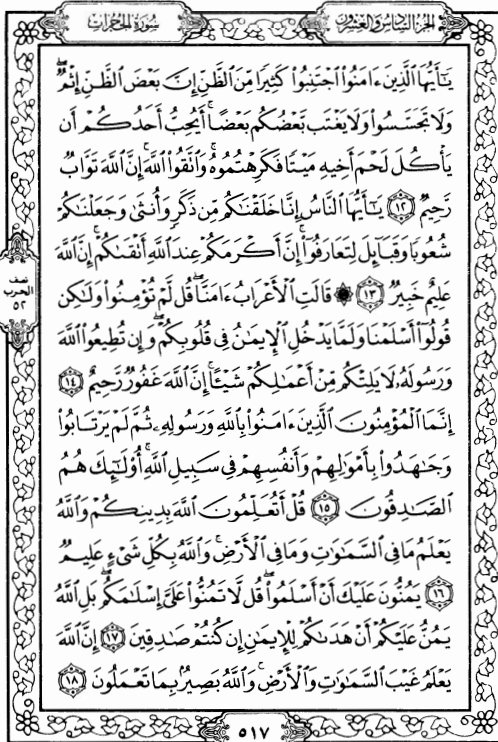 سورة الحجرات
الجزء السادس والعشرون
يَـٰٓأَيُّهَا ٱلَّذِينَ ءَامَنُوا۟ ٱجْتَنِبُوا۟ كَثِيرًا مِّنَ ٱلظَّنِّ إِنَّ بَعْضَ ٱلظَّنِّ إِثْمٌ ۖ
وَلَا تَجَسَّسُوا۟ وَلَا يَغْتَب بَّعْضُكُم بَعْضًا ۚ أَيُحِبُّ أَحَدُكُمْ أَن
يَأْكُلَ لَحْمَ أَخِيهِ مَيْتًا فَكَرِهْتُمُوهُ ۚ وَٱتَّقُوا۟ ٱللَّهَ ۚ إِنَّ ٱللَّهَ تَوَّابٌ
رَّحِيمٌ ١٢ يَـٰٓأَيُّهَا ٱلنَّاسُ إِنَّا خَلَقْنَـٰكُم مِّن ذَكَرٍ وَأُنثَىٰ وَجَعَلْنَـٰكُمْ
شُعُوبًا وَقَبَآئِلَ لِتَعَارَفُوٓا۟ ۚ إِنَّ أَكْرَمَكُمْ عِندَ ٱللَّهِ أَتْقَىٰكُمْ ۚ إِنَّ ٱللَّهَ
عَلِيمٌ خَبِيرٌ ١٣ ۞ قَالَتِ ٱلْأَعْرَابُ ءَامَنَّا ۖ قُل لَّمْ تُؤْمِنُوا۟ وَلَـٰكِن
قُولُوٓا۟ أَسْلَمْنَا وَلَمَّا يَدْخُلِ ٱلْإِيمَـٰنُ فِى قُلُوبِكُمْ ۖ وَإِن تُطِيعُوا۟ ٱللَّهَ
وَرَسُولَهُۥ لَا يَلِتْكُم مِّنْ أَعْمَـٰلِكُمْ شَيْـًٔا ۚ إِنَّ ٱللَّهَ غَفُورٌ رَّحِيمٌ ١٤
إِنَّمَا ٱلْمُؤْمِنُونَ ٱلَّذِينَ ءَامَنُوا۟ بِٱللَّهِ وَرَسُولِهِۦ ثُمَّ لَمْ يَرْتَابُوا۟
وَجَـٰهَدُوا۟ بِأَمْوَٰلِهِمْ وَأَنفُسِهِمْ فِى سَبِيلِ ٱللَّهِ ۚ أُو۟لَـٰٓئِكَ هُمُ
ٱلصَّـٰدِقُونَ ١٥ قُلْ أَتُعَلِّمُونَ ٱللَّهَ بِدِينِكُمْ وَٱللَّهُ
يَعْلَمُ مَا فِى ٱلسَّمَـٰوَٰتِ وَمَا فِى ٱلْأَرْضِ ۚ وَٱللَّهُ بِكُلِّ شَىْءٍ عَلِيمٌ
١٦ يَمُنُّونَ عَلَيْكَ أَنْ أَسْلَمُوا۟ ۖ قُل لَّا تَمُنُّوا۟ عَلَىَّ إِسْلَـٰمَكُم ۖ بَلِ ٱللَّهُ
يَمُنُّ عَلَيْكُمْ أَنْ هَدَىٰكُمْ لِلْإِيمَـٰنِ إِن كُنتُمْ صَـٰدِقِينَ ١٧ إِنَّ ٱللَّهَ
يَعْلَمُ غَيْبَ ٱلسَّمَـٰوَٰتِ وَٱلْأَرْضِ ۚ وَٱللَّهُ بَصِيرٌۢ بِمَا تَعْمَلُونَ ١٨
نصف
الحزب
٥٢
٥١٧